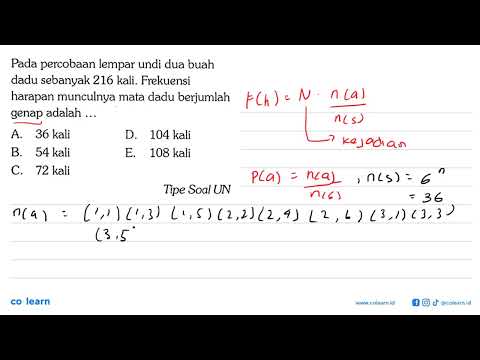 Pada percobaan lempar undi dua buah
dadu sebanyak 216 kali. Frekuensi
harapan munculnya mata dadu berjumlah
genap adalah ...
A. 36 kali D. 104 kali
B. 54 kali E. 108 kali
C. 72 kali
Tipe Soal UN
F(h) = N · n(a)/n(s)
→ kejadian
P(a) = n(a)/n(s) , n(s) = 6^n
= 36
n(a) = (1,1) (1,3) (1,5) (2,2) (2,4) (2,6) (3,1) (3,3)
(3,5
co learn
www.colearn.id
@colearn.id